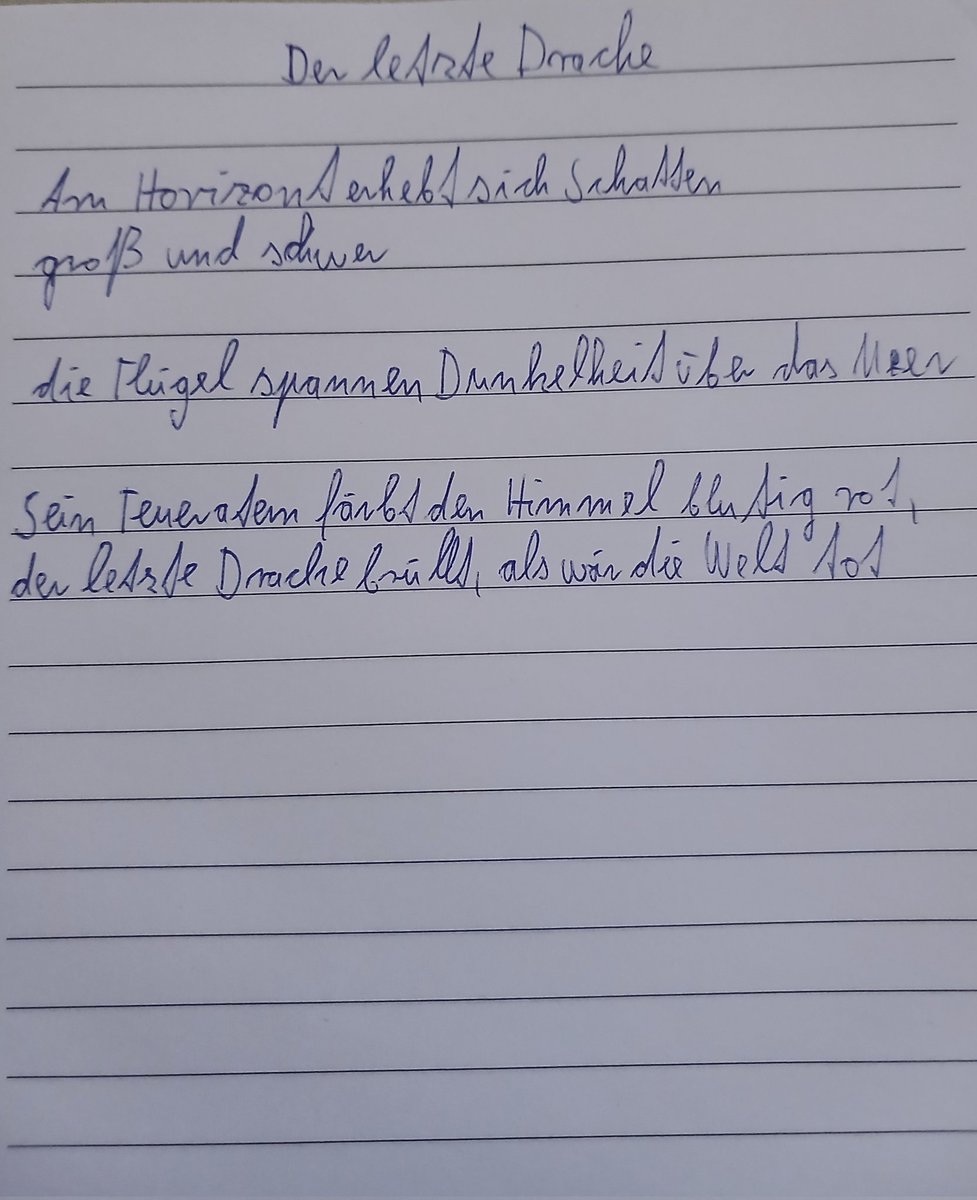 Der letzte Drache
Am Horizont erhebt sich Schatten
groß und schwer
die Flügel spannen Dunkelheit über das Meer
Sein Feueratem färbt den Himmel blutig rot,
der letzte Drache brüllt, als wär die Welt tot